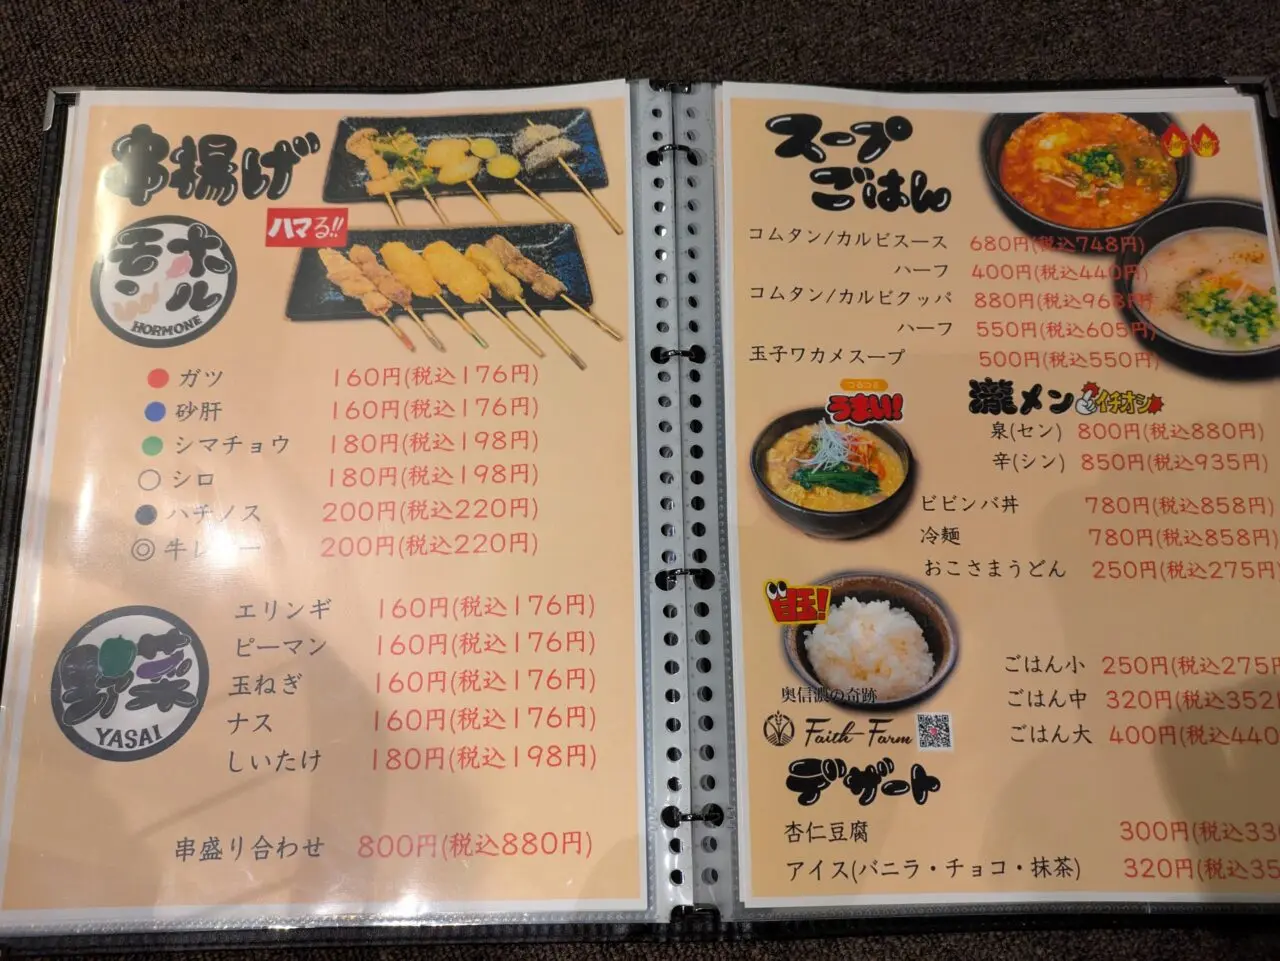 串揚げ
ハマる!!
ホルモン
HORMONE
ガツ 160円(税込176円)
砂肝 160円(税込176円)
シマチョウ 180円(税込198円)
シロ 180円(税込198円)
ハチノス 200円(税込220円)
牛レ 200円(税込220円)
野菜
YASAI
エリンギ 160円(税込176円)
ピーマン 160円(税込176円)
玉ねぎ 160円(税込176円)
ナス 160円(税込176円)
しいたけ 180円(税込198円)
串盛り合わせ 800円(税込880円)
スープ
ごはん
コムタン/カルビスース 680円(税込748円)
ハーフ 400円(税込440円)
コムタン/カルビクッパ 880円(税込968円)
ハーフ 550円(税込605円)
玉子ワカメスープ 500円(税込550円)
つるつる
うまい!
瀧メン イチオシ
泉(セン) 800円(税込880円)
辛(シン) 850円(税込935円)
ビビンバ丼 780円(税込858円)
冷麺 780円(税込858円)
おこさまうどん 250円(税込275円
目玉!
奥信濃の奇跡
Faith-Farm
ごはん小 250円(税込275円
ごはん中 320円(税込352
ごはん大 400円(税込440
デザート
杏仁豆腐 300円(税込33
アイス(バニラ・チョコ・抹茶) 320円(税込35